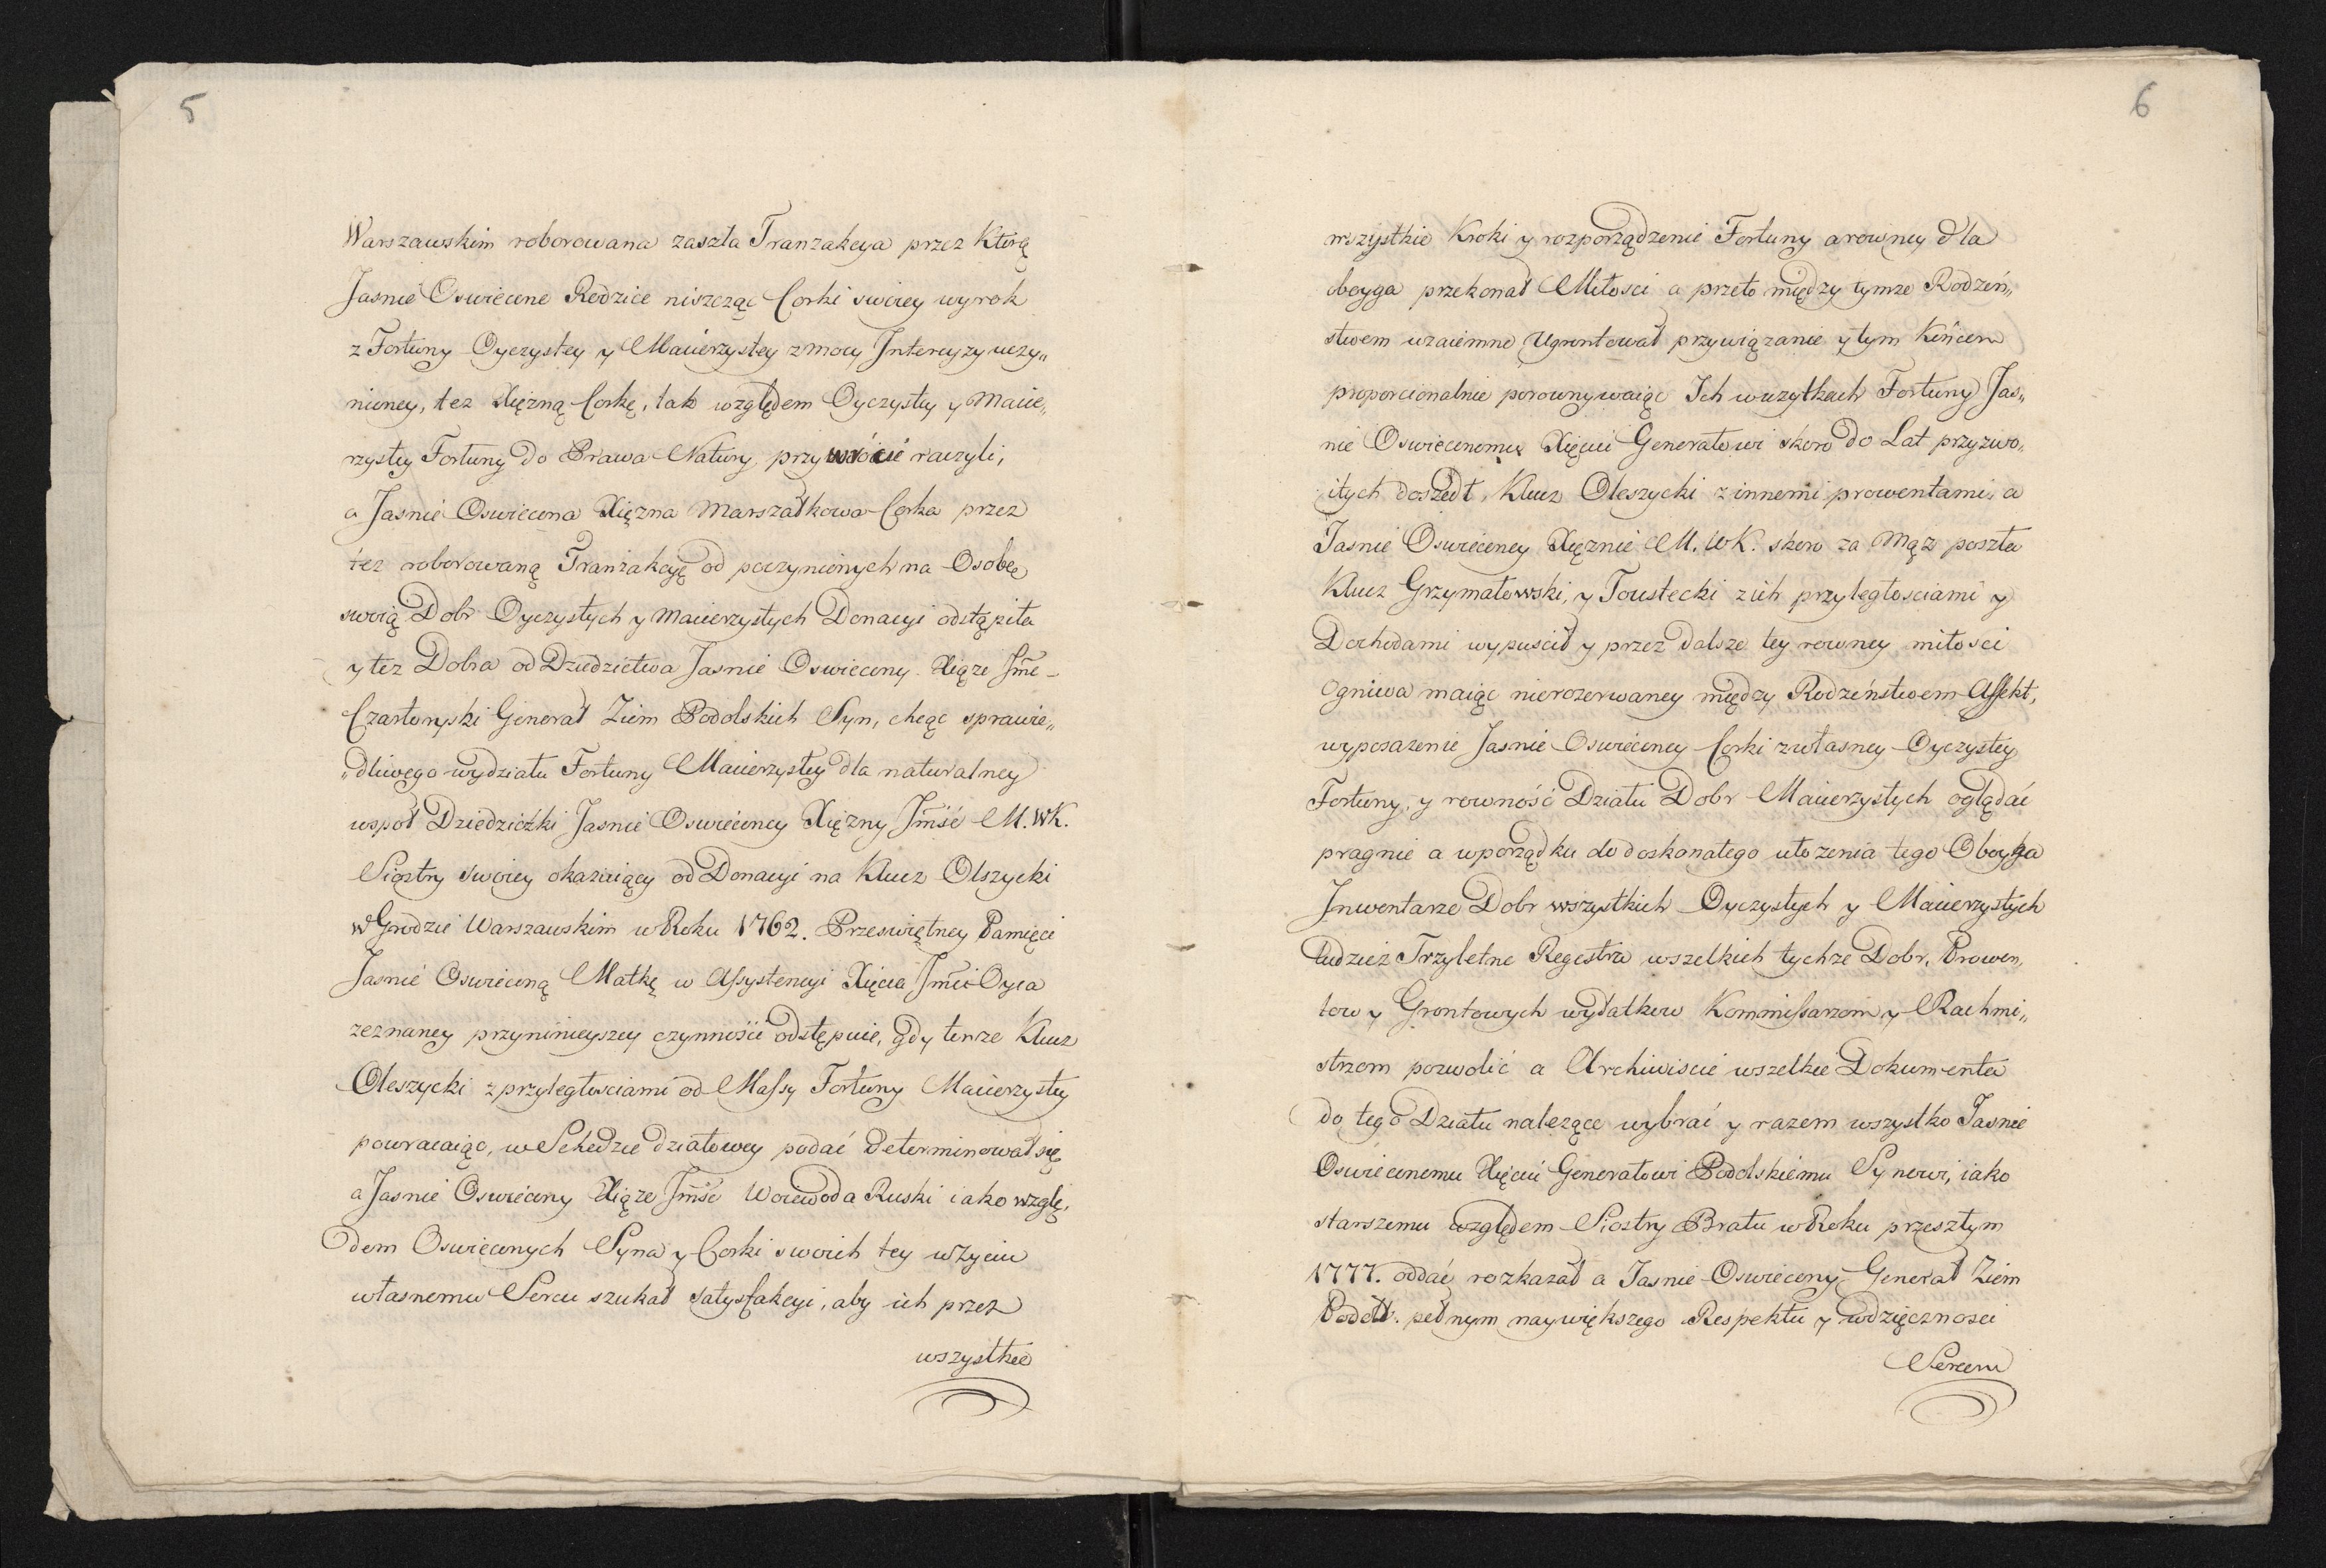 5
Warszawskim roborowana zaszła Tranzakcya przez Którą
Jasnie Oswiecone Rodzice niszcząc Corki swoiey wyrok
z Fortuny Oyczystey y Macierzystey z mocy Intercyzy uczy„
nioney, tez Xiężną Corkę, tak względem Oyczystey y Macie„
rzystey Fortuny do Prawa Natury przywrócić raczyli,
a Jasnie Oswiecona Xięzna Marszałkowa Corka przez
tez roborowaną Tranzakcyę od poczynionych na Osobę
swoią Dobr Oyczystych y Macierzystych Donacyi odstąpiła
y tez Dobra od Dziedzictwa Jasnie Oswiecony Xiąze Jmć
Czartoryski Generał Ziem Podolskich Syn, chcąc sprawie„
„dliwego wydziału Fortuny Macierzystey dla naturalney
wspoł Dziedziczki Jasnie Oswieconey Xięzny Jmść M. WK.
Siostry swoiey okazuiący od Donacyi na Klucz Olszycki
w Grodzie Warszawskim w Roku 1762. Przeswiętney Pamięci
Jasnie Oswieconą Matkę w Assystencyi Xięcia Jmci Oyca
zeznaney przyninieyszey czynności odstępuie, gdy tenze Klucz
Oleszycki z przyległosciami od Massy Fortuny Macierzystey
powracaiąc, w Schedzie działowey podać determinował się
a Jasnie Oswiecony Xiąze Jmść Woiewoda Ruski iako wzglę„
dem Oswieconych Syna y Corki swoich tey w Zyciu
własnemu Sercu szukał satysfakcyi, aby ich przez
wszystkie
6
wszystkie Kroki y rozporządzenie Fortuny a rowney dla
oboyga przekonał Miłosci a przeto między tymze Rodzeń„
stwem wzaiemne Ugruntował przywiązanie y tym Końcem
proporcionalnie porownywaiąc Ich w uzytkach Fortuny Jas„
nie Oswieconemu Xięciu Generałowi skoro do Lat przyzwo„
itych doszedł, Klucz Oleszycki z innemi prowentami, a
Jasnie Oswieconey Xięznie M. WK. skoro za Mąz poszła
Klucz Grzymałowski, y Toustecki z ich przyległosciami y
Dochodami wypuscił y przez dalsze tey rowney miłosci
Ogniwa maiąc nierozerwaney między Rodzeństwem Affekt,
wyposazenie Jasnie Oswieconey Corki z własney Oyczystey
Fortuny, y rowność Działu Dobr Macierzystych oglądać
pragnie a w porządku do doskonałego ułozenia tego Oboyga
Inwentarze Dobr wszystkich Oyczystych y Macierzystych
tudziez Trzyletne Regestra wszelkich tychze Dobr, Prowen„
tow y Grontowych wydatkow Kommissarzom y Rachmi„
strzom pozwolić a Archiwiscie wszelkie Dokumenta
do tego Działu nalezące wybrać y razem wszystko Jasnie
Oswieconemu Xięciu Generałowi Podolskiemu Synowi, iako
starszemu względem Siostry Bratu w Roku przeszłym
1777. oddać rozkazał a Jasnie Oswiecony Generał Ziem
Podolk. pełnym naywiększego Respektu y wdzięcznosci
Sercem